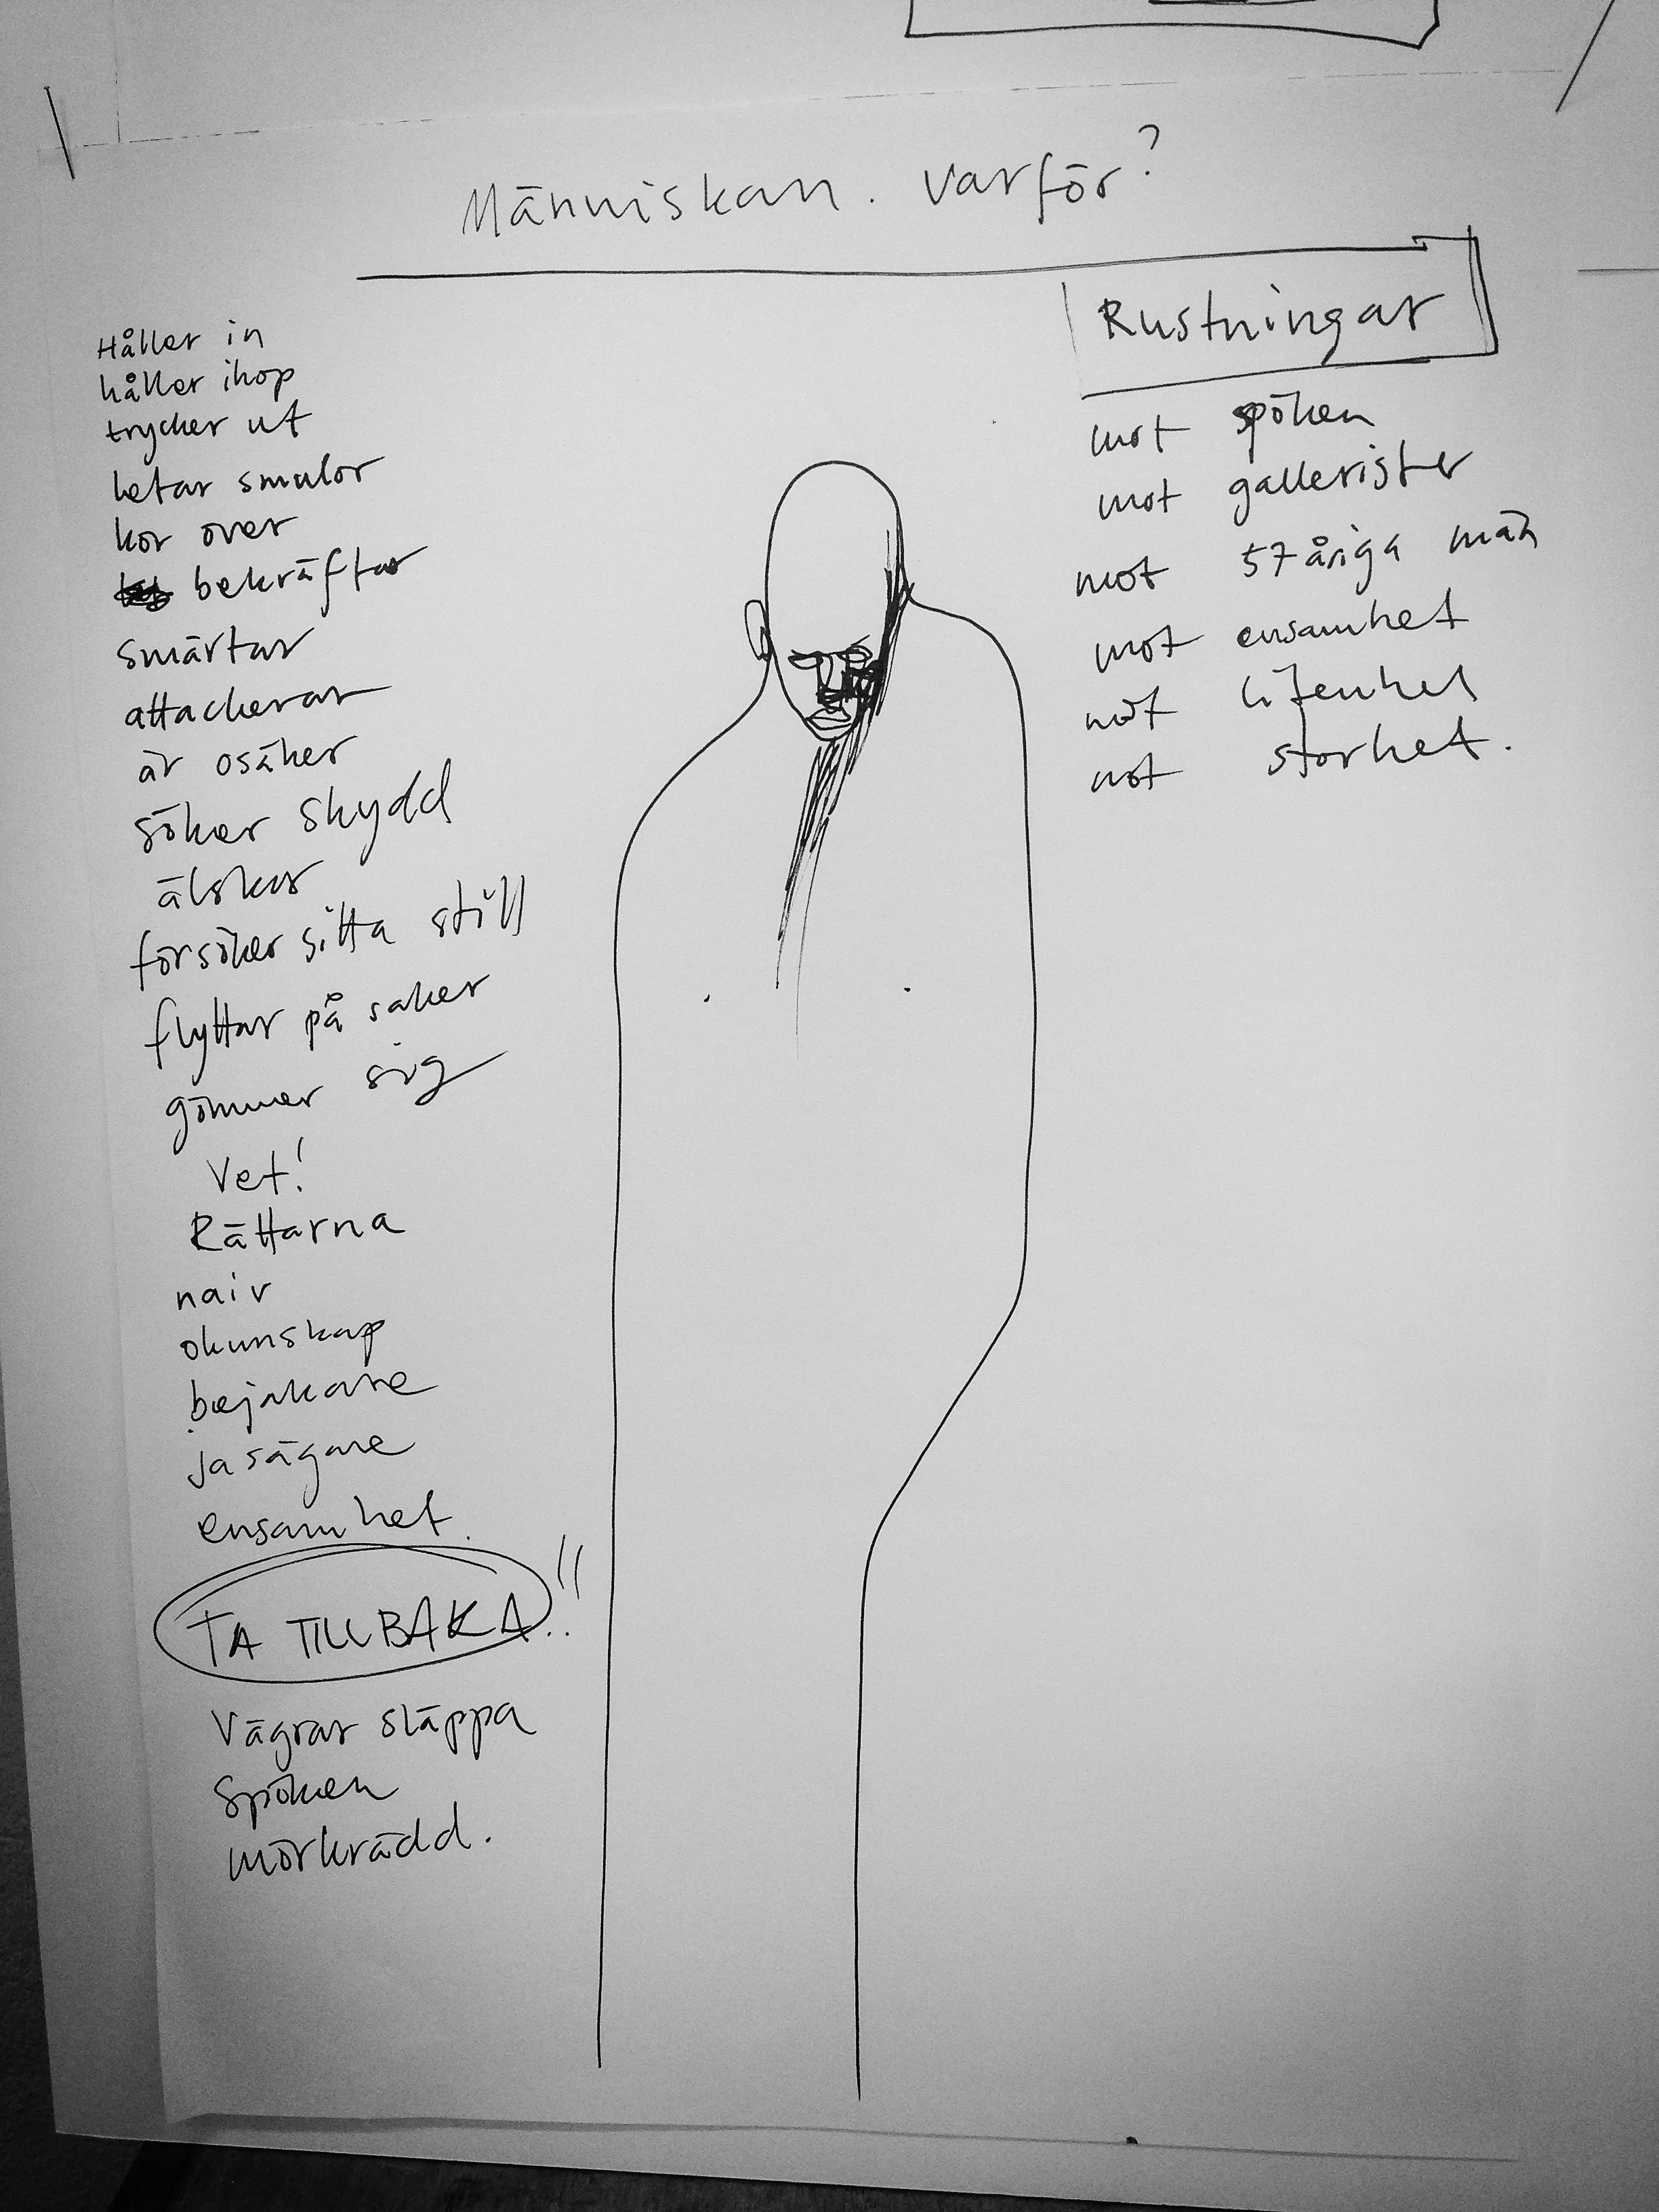 Människan. Varför?
Håller in
håller ihop
trycker ut
letar smulor
kör över
bekräftar
smärtar
attackerar
är osäker
söker skydd
älskar
försöker sitta still
flyttar på saker
gömmer sig
Vet!
Rättarna
naiv
okunskap
bejakare
Jasägare
ensamhet.
TA TILLBAKA!!
Vägrar släppa
Spöken
mörkrädd.
Rustningar
mot spöken
mot gallerister
mot 57åriga män
mot ensamhet
mot litenhet
mot storhet.